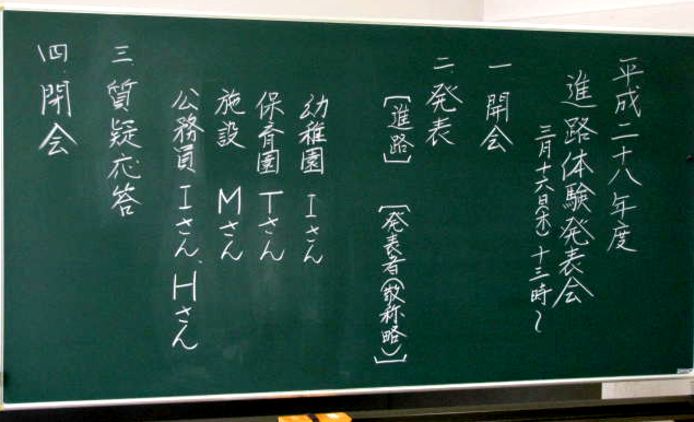 平成二十八年度
進路体験発表会
三月十六日(木)十三時〜
一 開会
二 発表
[進路] [発表者(敬称略)]
幼稚園 Iさん
保育園 Tさん
施設 Mさん
公務員 Iさん、Hさん
三 質疑応答
四 閉会